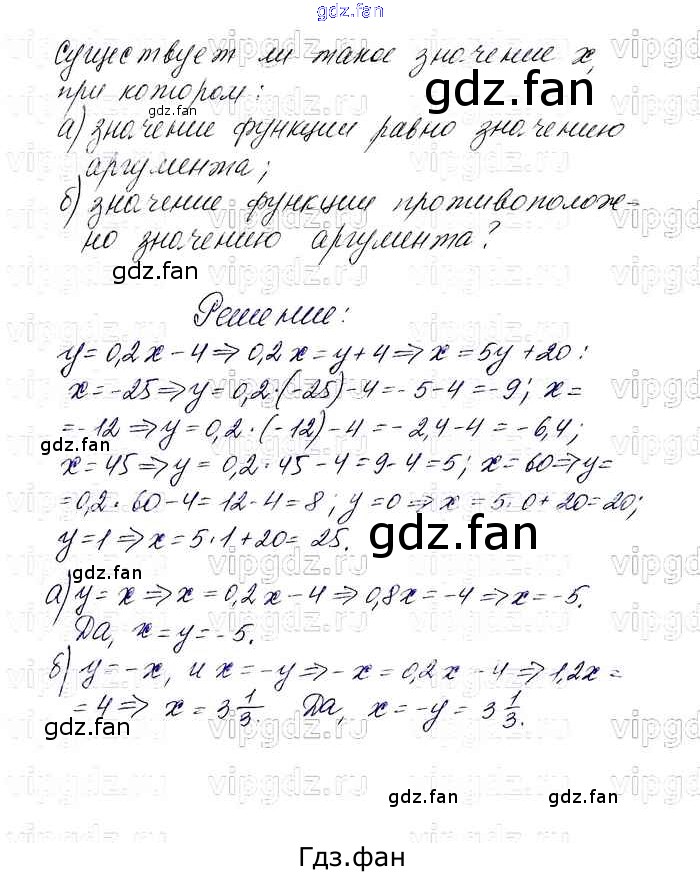 gdz.fan
Существует ли такое значение x,
при котором:
а) значение функции равно значению
аргумента;
б) значение функции противополож-
но значению аргумента?
Решение:
y = 0,2x - 4 ⇒ 0,2x = y + 4 ⇒ x = 5y + 20:
x = -25 ⇒ y = 0,2·(-25) - 4 = -5 - 4 = -9; x =
= -12 ⇒ y = 0,2·(-12) - 4 = -2,4 - 4 = -6,4;
x = 45 ⇒ y = 0,2·45 - 4 = 9 - 4 = 5; x = 60 ⇒ y =
= 0,2·60 - 4 = 12 - 4 = 8; y = 0 ⇒ x = 5·0 + 20 = 20;
y = 1 ⇒ x = 5·1 + 20 = 25.
а) y = x ⇒ x = 0,2x - 4 ⇒ 0,8x = -4 ⇒ x = -5.
Да, x = y = -5.
б) y = -x, и x = -y ⇒ -x = 0,2x - 4 ⇒ 1,2x =
= 4 ⇒ x = 3 1/3. Да, x = -y = 3 1/3.
gdz.fan gdz.fan
Гдз.фан